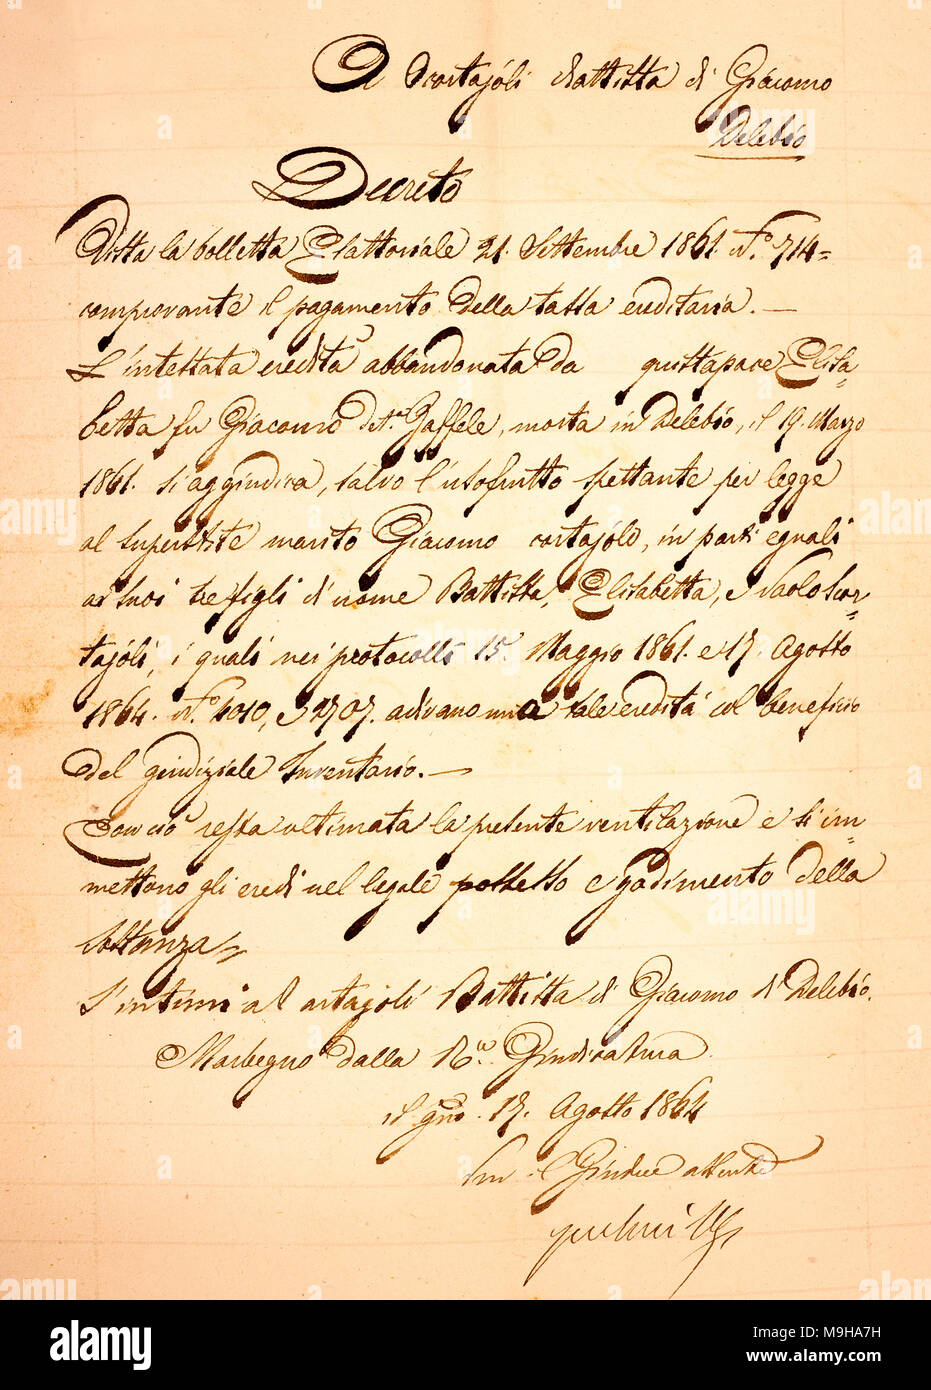 A Scortajoli Battista di Giacomo
Delebio
Decreto
Vista la bolletta Esattoriale 21. Settembre 1861. N.º 714=
comprovante il pagamento della tassa ereditaria. —
L'intestata eredità abbandonata da gustapace Elisa-
betta fu Giacomo det.ª Gaffele, morta in Delebio, il 19. Marzo
1861. si aggiudica, salvo l'usofrutto spettante per legge
al superstite marito Giacomo cortajolo, in parti eguali
ai suoi tre figli di nome Battista, Elisabetta, e Paolo Scor-
tajoli, i quali nei protocolli 15. Maggio 1861. e 17. Agosto
1864. N.º 4010, e 2707. adivano una tale eredità col beneficio
del giudiziale Inventario. —
Con ciò resta ultimata la presente ventilazione e si im-
mettono gli eredi nel legale possesso e godimento della
sostanza=
S'intimi al ortajoli Battista di Giacomo di Delebio.
Morbegno dalla R.ª Giudicatura
il gno. 17. Agosto 1864
il Giudice assente
alamy
a
alamy
Image ID: M9HA7H
www.alamy.com